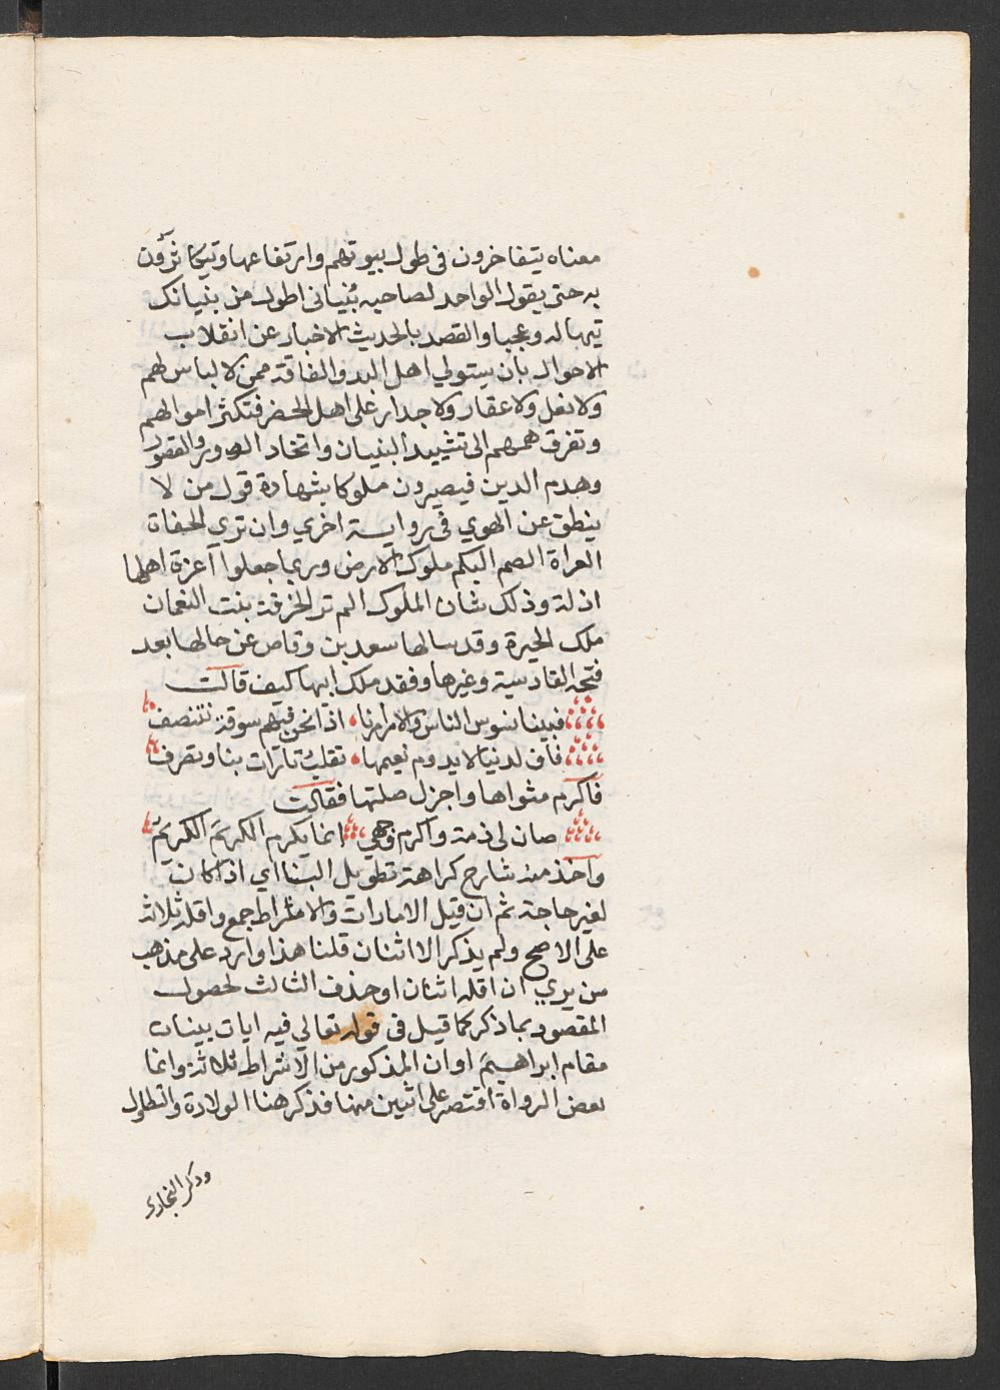 معناه يتفاخرون فى طول بيوتهم وارتفاعها ويتكاثرون
به حتى يقول الواحد لصاحبه بُنيانى اطول من بنيانك
تيهاله وعجبا والقصد بالحديث الاخبار عن انقلاب
الاحوال بان يستولي اهل البدو الفاقة ممن لا لباس لهم
ولا نعل ولا عقار ولا جدار على اهل الحضر فتكثر اموالهم
وتفرق هممهم الى تشييد البنيان واتخاد الدور والقصور
وهدم الدين فيصيرون ملوكا بشهادة قول من لا
ينطق عن الهوي فى رواية اخري وان تري الحفاة
العراة الصم البكم ملوك الارض وربما جعلوا اعزة اهلها
اذلة وذلك شان الملوك الم تر لخرقة بنت النعمان
ملك الحيرة وقد سالها سعد بن وقاص عن حالها بعد
فتحه القادسية وغيرها وفقد ملك ابيها كيف قالت
فبينا نسوس الناس والامر امرنا اذا نحن فيهم سوقة نتنصف
فاف لدنيا لا يدوم نعيمها تقلب تارات بنا وتصرف
فاكرم مثواها واجزل صلتها فقالت
صان لى ذمة واكرم وجهي انما يكرم الكريمَ الكريم
واخذ منه شارح كراهة تطويل البناء اي اذا كان
لغير حاجة ثم ان قيل الامارات والاشراط جمع واقله ثلاث
على الاصح ولم يذكر الا اثنان قلنا هذا وارد على مذهب
من يري ان اقله اثنان او حذف الثالث لحصول
المقصود بما ذكر كما قيل فى قوله تعالي فيه ايات بينات
مقام ابراهيم او ان المذكور من الاشراط ثلاثة وانما
بعض الرواة اقتصر على اثنين منها فذكر هنا الولادة والتطاول
وذكر البخارى